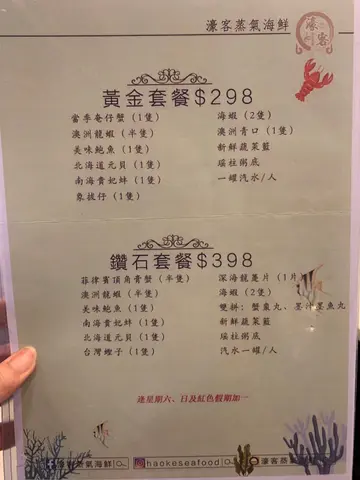 濠客蒸氣海鮮
濠客
黃金套餐$298
當季奄仔蟹（1隻）
澳洲龍蝦（半隻）
美味鮑魚（1隻）
北海道元貝（1隻）
南海貴妃蚌（1隻）
象拔仔（1隻）
海蝦（2隻）
澳洲青口（1隻）
新鮮蔬菜籃
瑤柱粥底
一罐汽水/人
鑽石套餐$398
菲律賓頂角膏蟹（半隻）
澳洲龍蝦（半隻）
美味鮑魚（1隻）
南海貴妃蚌（1隻）
北海道元貝（1隻）
台灣蟶子（1隻）
深海龍躉片（1片）
海蝦（2隻）
雙拼：蟹棗丸、墨汁墨魚丸
新鮮蔬菜籃
瑤柱粥底
汽水一罐/人
逢星期六、日及紅色假期加一
濠客蒸氣海鮮
haokeseafood
濠客蒸氣